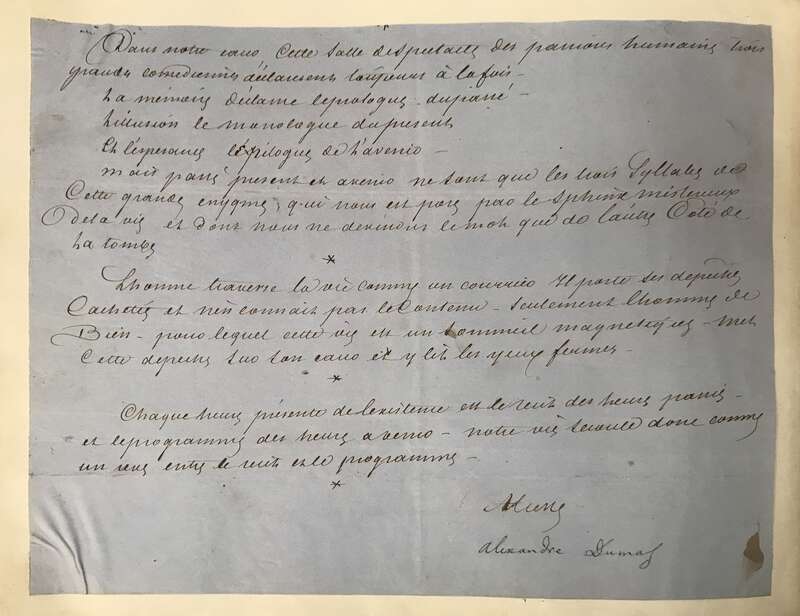 Dans notre cœur Cette Salle de spectacles des passions humaines trois
grandes comediennes déclament toujours à la fois -
La mémoire déclame le prologue du passé -
L'illusion le monologue du présent
Et l'esperance l'épilogue de l'avenir -
mais passé présent et avenir ne sont que les trois Syllabes de
Cette grande enygme, qui nous est posée par le Sphinx misterieux
De la vie et dont nous ne devinons le mot que de l'autre Coté de
La tombe
*
L'homme traverse la vie comme un courrier Il porte ses depeches
Cachetées et n'en connait pas le Contenu - Seulement l'homme de
Bien - pour lequel cette vie est un Sommeil magnetique - met
Cette depeche sur son cœur et y lit les yeux fermés -
*
Chaque heure présente de l'existence est le récit des heures passées -
et le programme des heures a venir - notre vie s'ecoule donc comme
un reve entre le recit et le programme -
*
Alexandre Dumas